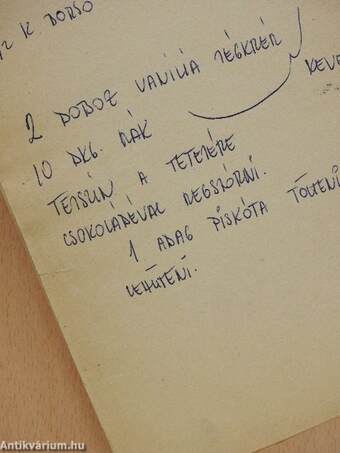 K. BORSÓ
2 DOBOZ VANILIA JÉGKRÉM
KEVE
10 DKG. MÁK
TEJSZIN A TETEJÉRE
CSOKOLÁDÉVAL MEGSZÓRNI.
1 ADAG PISKÓTA TÖLTENI
LEHŰTENI.
Antikvárium.hu